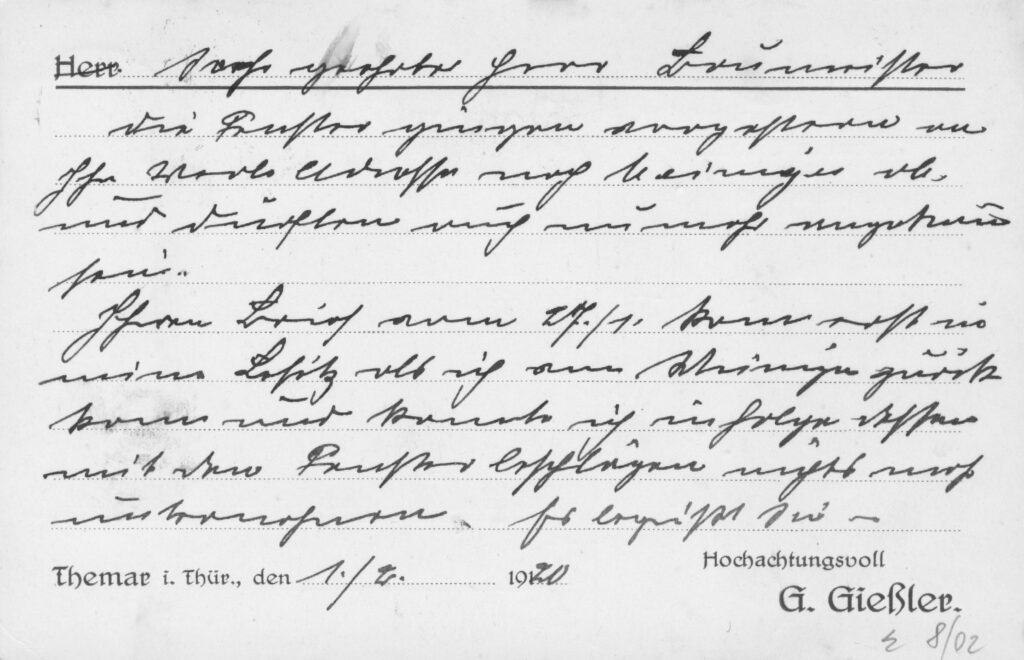 Herr Sehr geehrter Herr Baumeister
die Fenster gingen vorgestern an
Ihre Werks Adresse nach Meiningen ab.
und dürften auch nunmehr angekommen
sein.
Ihren Brief vom 27./1. kam erst in
meinen Besitz als ich von Meiningen zurück
kam und konnte ich infolge dessen
mit den Fensterbeschlägen nichts mehr
unternehmen. Es begrüßt Sie
Themar i. Thür., den 1./2. 1920
Hochachtungsvoll
G. Gießler.
8/02